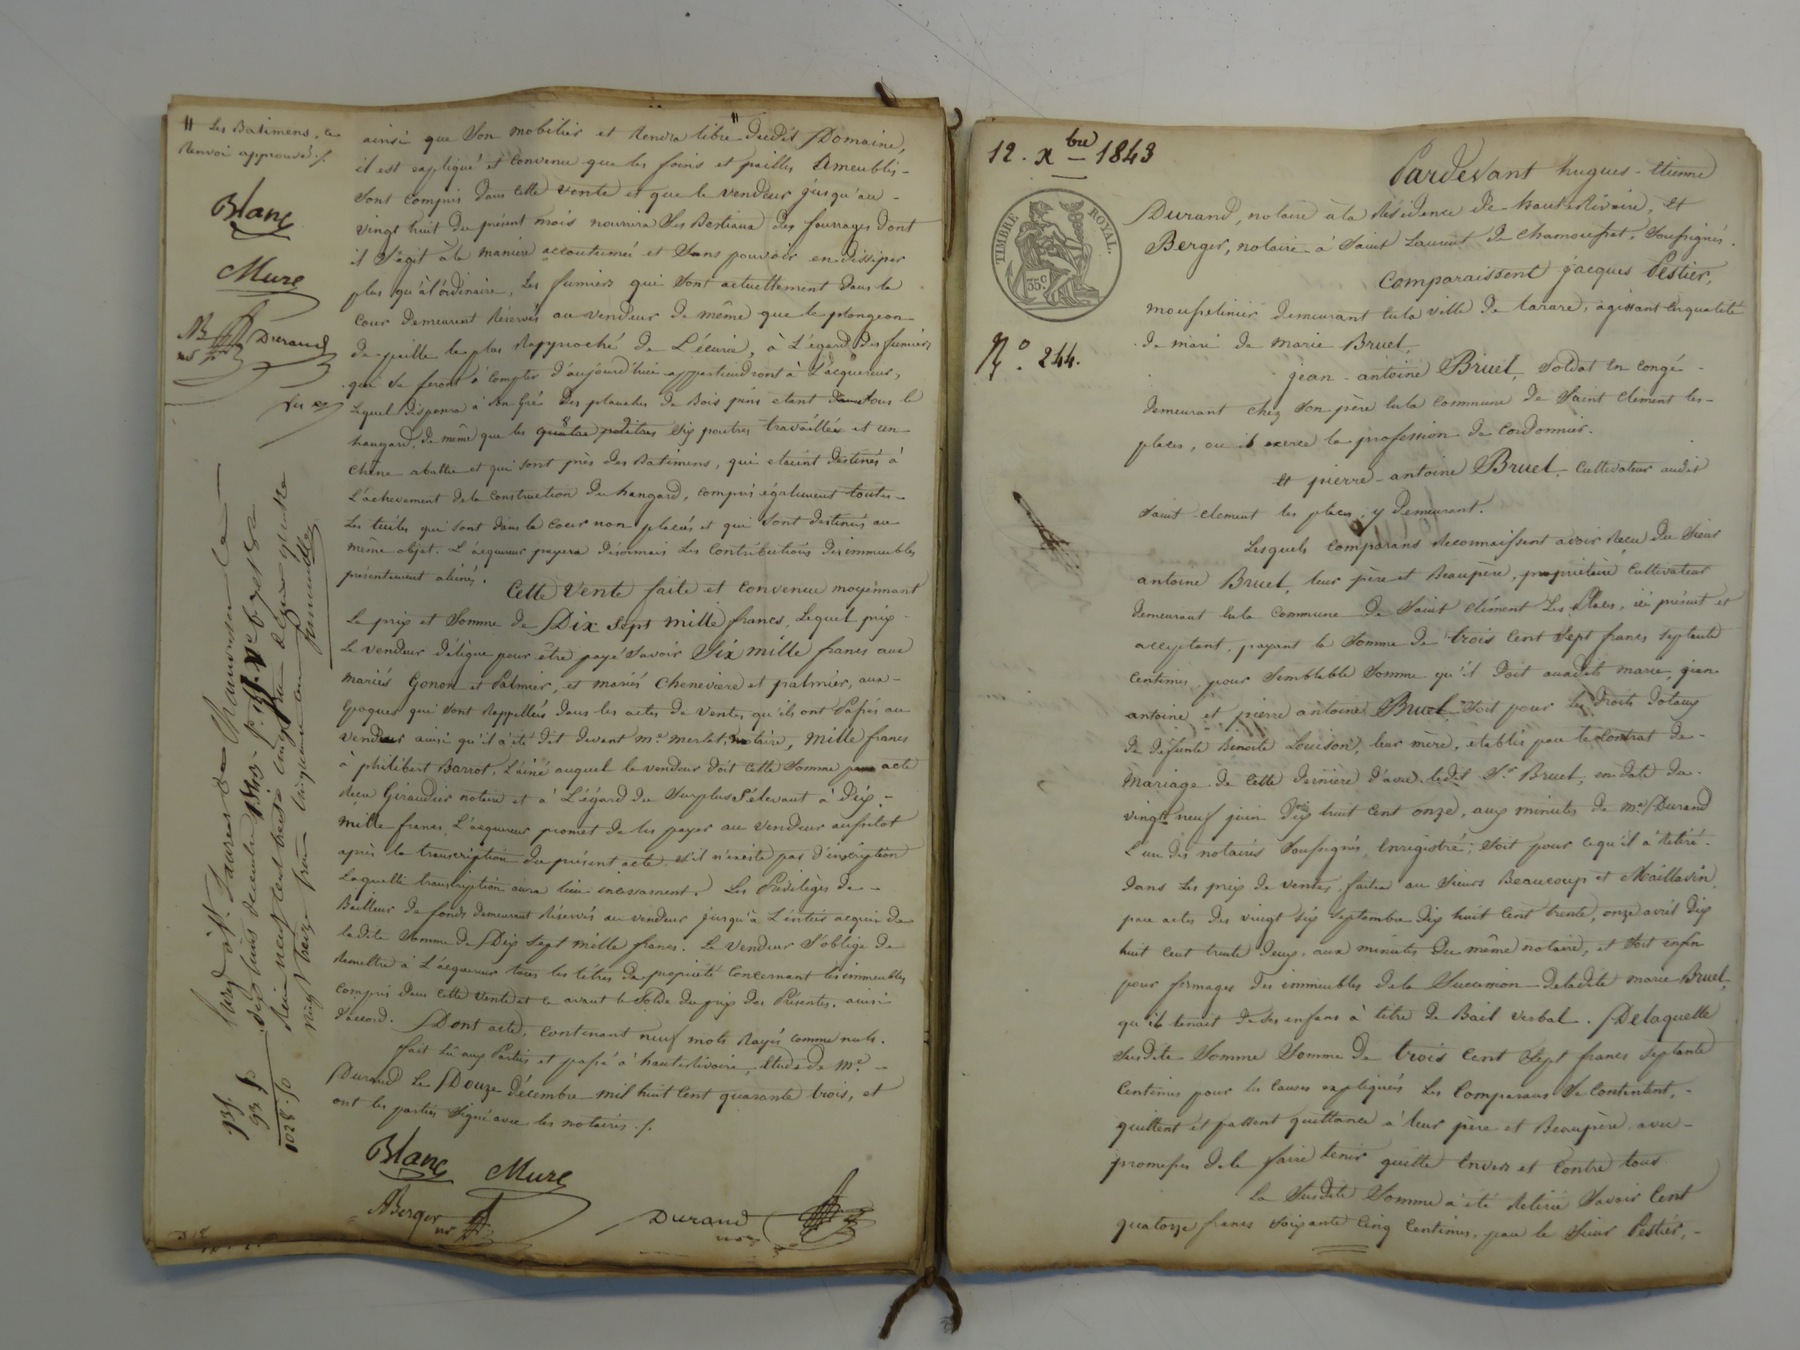 " Les Batimens, ce
Renvoi approuvé ./.
Blanc
Mure
AB
Durand
ainsi que Son mobilier et Rendra libre " dudit Domaine,
il est expliqué et convenu que les foins et pailles Ameublis
Sont compris dans cette Vente et que le vendeur jusqu'au
vingt huit du présent mois nourrira Ses Bestiaux des fourrages dont
il S'agit à la manière accoutumée et Sans pouvoir en dissiper
plus qu'à l'ordinaire, Les fumiers qui Sont actuellement dans la
Cour demeurent Réservés au vendeur de même que le plongeon
de paille le plus Rapproché de L'écurie, à L'égard des fumiers
qui Se feront à compter d'aujourd'hui appartiendront à L'acquéreur,
Lequel disposera à Son gré Des planches de Bois pins étant Sous le
hangard, de même que les Six poutres travaillées et un
Chêne abattu et qui Sont près des Batimens, qui etaient destinés à
L'achevement dela construction du hangard, compris également toutes
Les tuiles qui sont dans la cour non placées et qui Sont destinées au
même objet. L'acquereur payera désormais Les Contributions des immeubles
présentement aliénés.
Cette Vente faite et convenue moyennant
Le prix et Somme de Dix Sept Mille francs, Lequel prix
Le vendeur délègue pour être payé Savoir Six mille francs aux
mariés Gonon et Palmier, et mariés Chenevière et palmier, aux
Epoques qui Sont Rappellées dans les actes de Ventes qu'ils ont Passés au
vendeur ainsi qu'il a été dit devant Me Merlat, notaire, Mille francs
à philibert Barrot, L'ainé auquel le vendeur doit Cette Somme par acte
Reçu Giraudier notaire et à L'égard du Surplus S'élevant à dix
mille francs, L'acquereur promet de les payer au vendeur aussitot
après la transcription du présent acte S'il n'existe pas d'inscription
Laquelle transcription aura lieu incessament. Les Privilèges de
Bailleur de fonds demeurant Réservés au vendeur jusqu'à L'entier acquit de
ladite Somme de Dix Sept mille francs. Le vendeur S'oblige de
Remettre à L'acquereur tous les titres de propriété Concernant les immeubles
Compris dans Cette Vente et ce avant le Solde du prix des Présentes, ainsi
d'accord. Dont acte, contenant neuf mots Rayés comme nuls.
fait Lu aux Parties et passé à hauterivoire, Etude de Me
Durand Le Douze décembre mil huit Cent quarante trois, et
ont les parties Signé avec les notaires ./.
Blanc Mure
ABerger Durand
1028.50
12. Xbre 1843
TIMBRE ROYAL
35c
No. 244.
Pardevant hugues-Etienne
Durand, notaire à la Résidence de hauterivoire, Et
Berger, notaire à Saint Laurent de Chamousset, Soussignés.
Comparaissent jacques Pestier,
mousselinier demeurant En la ville de tarare, agissant En qualité
de mari de marie Bruel,
jean-antoine Bruel, Soldat En congé
demeurant chez Son père En la Commune de Saint Clement les
places, ou il exerce la profession de Cordonnier.
Et pierre-antoine Bruel, Cultivateur audit
Saint-Clement les places, y demeurant.
Lesquels comparans Reconnaissent avoir Reçu du Sieur
antoine Bruel, leur père et Beaupère, propriétaire Cultivateur
demeurant En la Commune de Saint Clément Les Places, ici présent et
acceptant, payant la Somme de trois Cent Sept francs Septante
Centimes, pour Semblable Somme qu'il doit auxdits marie, jean
antoine et pierre antoine Bruel, Soit pour Les Droits Dotaux
de défunte Benoite Louison, leur mère, etablis par le Contrat de
Mariage de Cette dernière d'avec ledit Sr Bruel, en date du
vingt neuf juin Dix huit cent onze, aux minutes de me Durand
L'un des notaires Soussignés Enregistré; Soit pour ce qu'il a Retiré
dans Les prix de ventes faites aux Sieurs Beaucoup et Maillavin,
par actes des vingt Six Septembre Dix huit Cent trente, onze avril Dix
huit cent trente deux, aux minutes du même notaire, et Soit enfin
pour fermages Des immeubles de la Succession de ladite marie Bruel,
qu'il tenait de Ses enfans à titre de Bail Verbal. De laquelle
Susdite Somme Somme de trois Cent Sept francs Septante
Centimes pour les Causes expliquées Les Comparans Se Contentent,
quittent et passent quittance à leur père et Beaupère, avec
promesses de le faire tenir quitte Envers et Contre tous.
La Susdite Somme a été Retirée Savoir Cent
quatorze francs Soixante Cinq Centimes, par le Sieur Pestier,